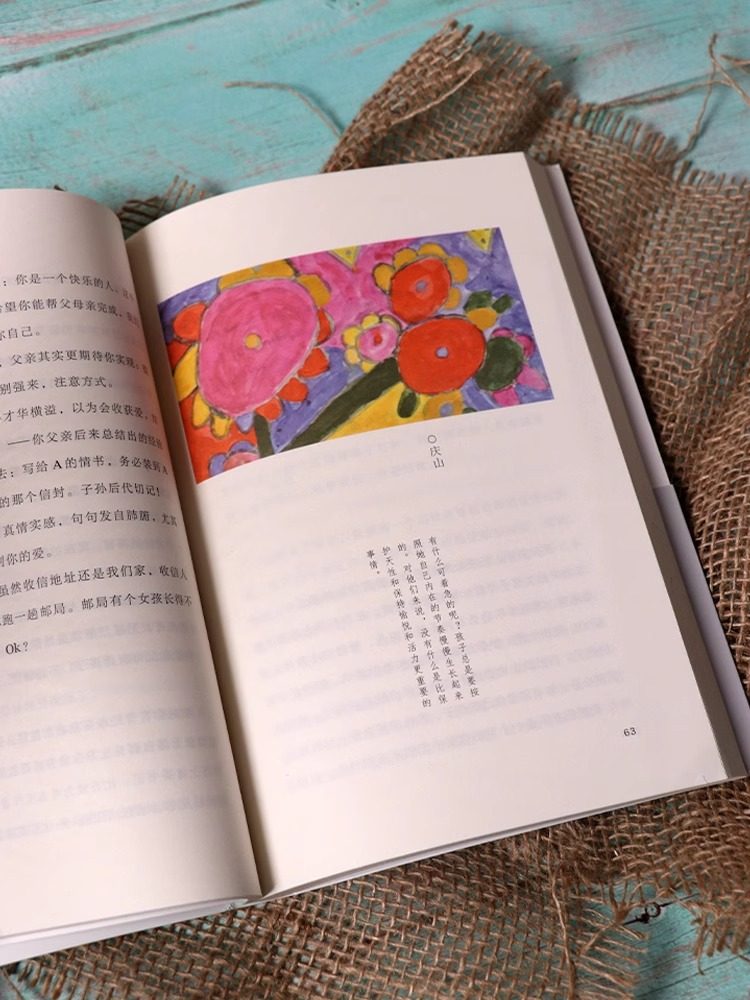 ：你是一个快乐的人。
希望你能帮父母亲完成，
你自己。
，父亲其实更期待你实现；
别强来，注意方式。
才华横溢，以为会收获爱，
——你父亲后来总结出的经验
去：写给 A 的情书，务必装到 A
的那个信封。子孙后代切记！
真情实感，句句发自肺腑，尤其
到你的爱。
虽然收信地址还是我们家，收信人
跑一趟邮局。邮局有个女孩长得不
Ok？
○庆山
有什么可着急的呢？孩子总是要按
照她自己内在的节奏慢慢生长起来
的。对他们来说，没有什么是比保
护天性和保持愉悦和活力更重要的
事情。
63